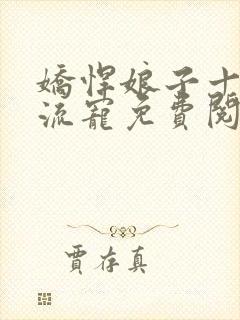 嬌悍娘子十
流寵免費閱
賈存真